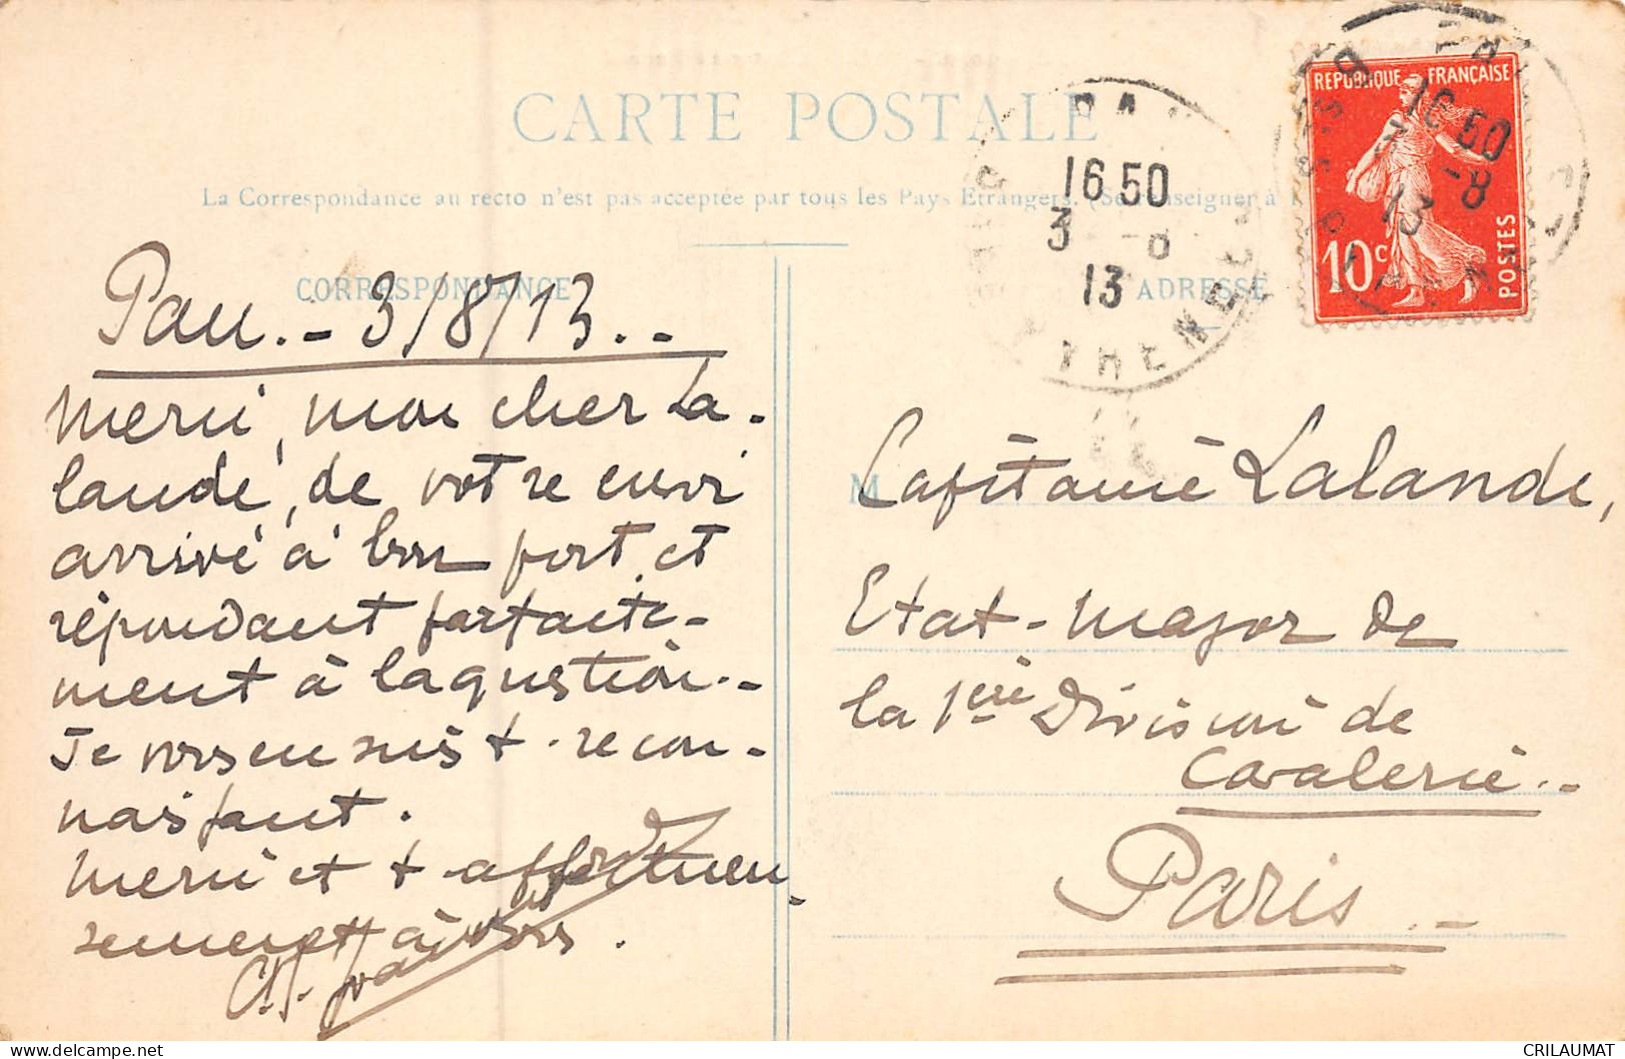 CARTE POSTALE
La Correspondance au recto n'est pas acceptée par tous les Pays Etrangers. (Se renseigner à
CORRESPONDANCE
Pau. - 3/8/13. -
Merci, mon cher La-
lande, de votre envoi
arrivé à bon port et
répondant parfaite-
ment à la question. -
Je vous en suis + recon-
naissant.
Merci et + affectueu-
sement à vous.
ADRESSE
16 50
3 -8
13
REPUBLIQUE FRANÇAISE
10c
POSTES
16 50
-8
13
M
Capitaine Lalande,
Etat-Major de
la 1ère Division de
Cavalerie. -
Paris. -
CRILAUMAT